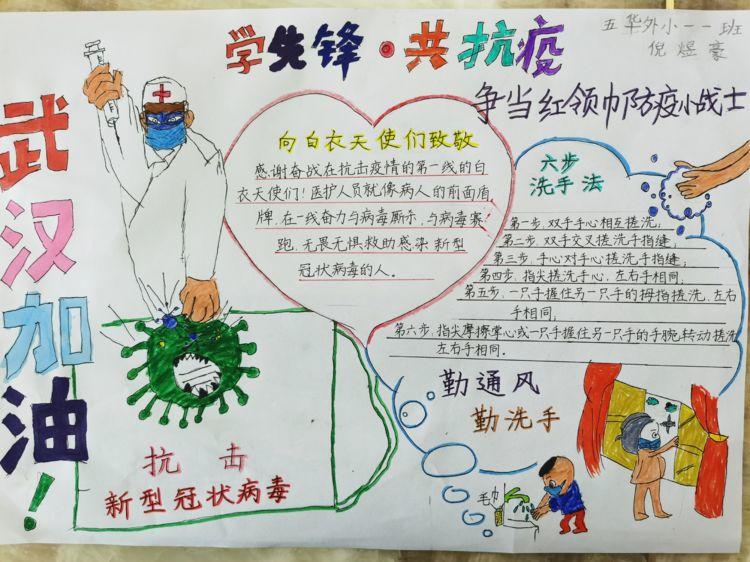 五华外小一一班
倪煜豪
学先锋·共抗疫
争当红领巾防疫小战士
武汉加油！
向白衣天使们致敬
感谢奋战在抗击疫情的第一线的白
衣天使们！医护人员就像病人的前面盾
牌，在一线奋力与病毒厮杀，与病毒赛
跑，无畏无惧救助感染新型
冠状病毒的人。
六步
洗手法
第一步，双手手心相互搓洗；
第二步，双手交叉搓洗手指缝；
第三步，手心对手心搓洗手指缝；
第四步，指尖搓洗手心，左右手相同；
第五步，一只手握住另一只手的拇指搓洗，左右
手相同；
第六步，指尖摩擦掌心或一只手握住另一只手的手腕转动搓洗
左右手相同。
勤通风
勤洗手
毛巾
抗击
新型冠状病毒